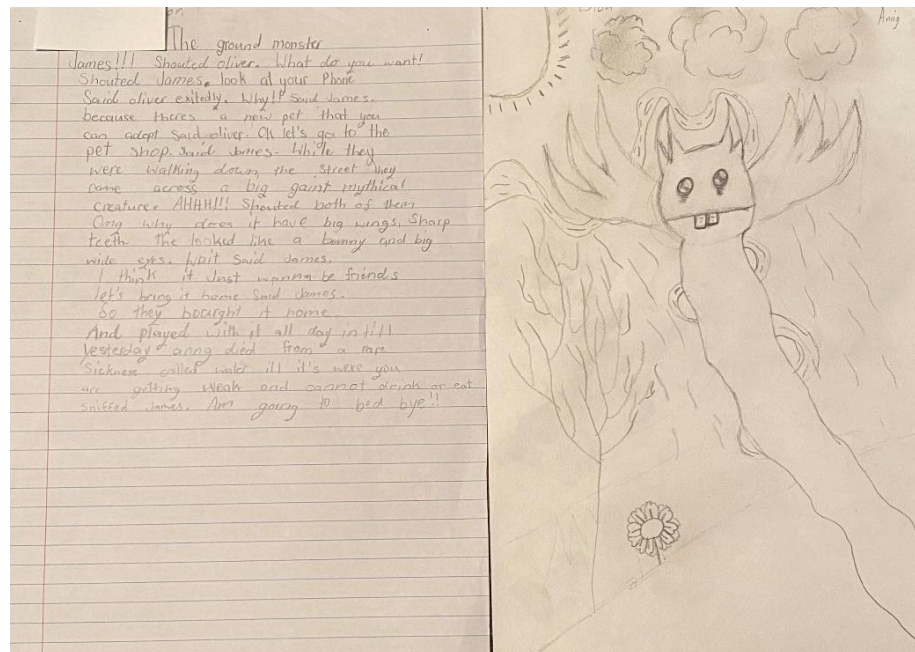 The ground monster
James!!! Shouted oliver. What do you want!
Shouted James. look at your Phone
Said oliver exitedly. Why!! Said James.
because theres a new pet that you
can adopt Said oliver. Ok let's go to the
pet shop. Said James. While they
were walking down the street they
came across a big gaint mythical
creature. AHHH!!! Shouted both of them
Omg why does it have big wings, Sharp
teeth The looked like a bunny and big
wide eyes. Wait Said James.
I think it Just wanna be friends
let's bring it home Said James.
So they bourght it home.
And played with it all day intill
Yesterday anng died from a rare
Sickness called water ill it's were you
are getting weak and cannot drink or eat
sniffed James. Am going to bed bye!!